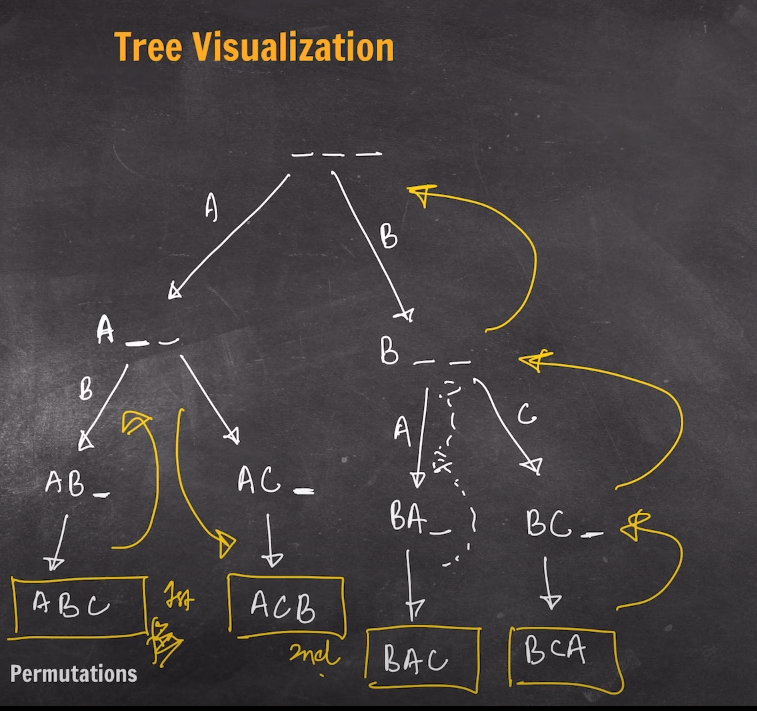 Tree Visualization
_ _ _
A
B
A _ _
B _ _
B
A
C
AB _
AC _
BA _
BC _
ABC
1st
ACB
2nd
BAC
BCA
Permutations